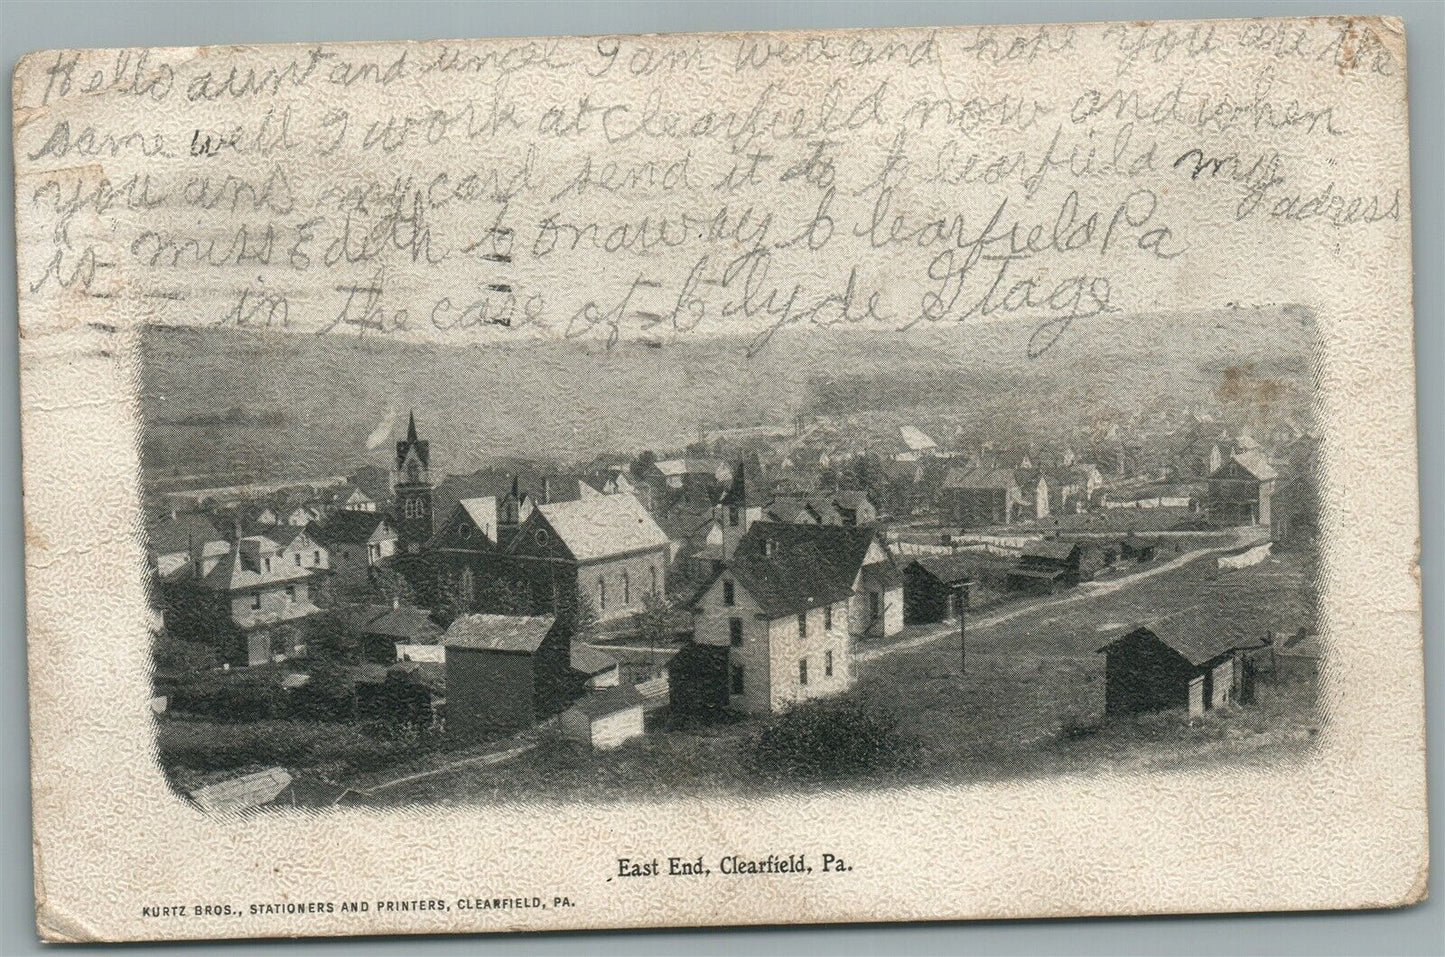 Hello aunt and uncel I am well and hope you are the
same well I work at Clearfield now and when
you and my card send it to Clearfield my adress
is miss Edith Clearfield Pa
in the care of Clyde Stage
East End, Clearfield, Pa.
KURTZ BROS., STATIONERS AND PRINTERS, CLEARFIELD, PA.